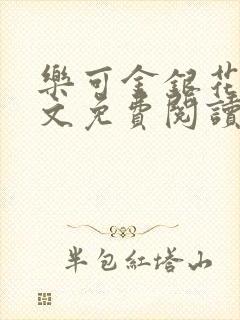 樂可金銀花
文免費閱讀
半包紅塔山